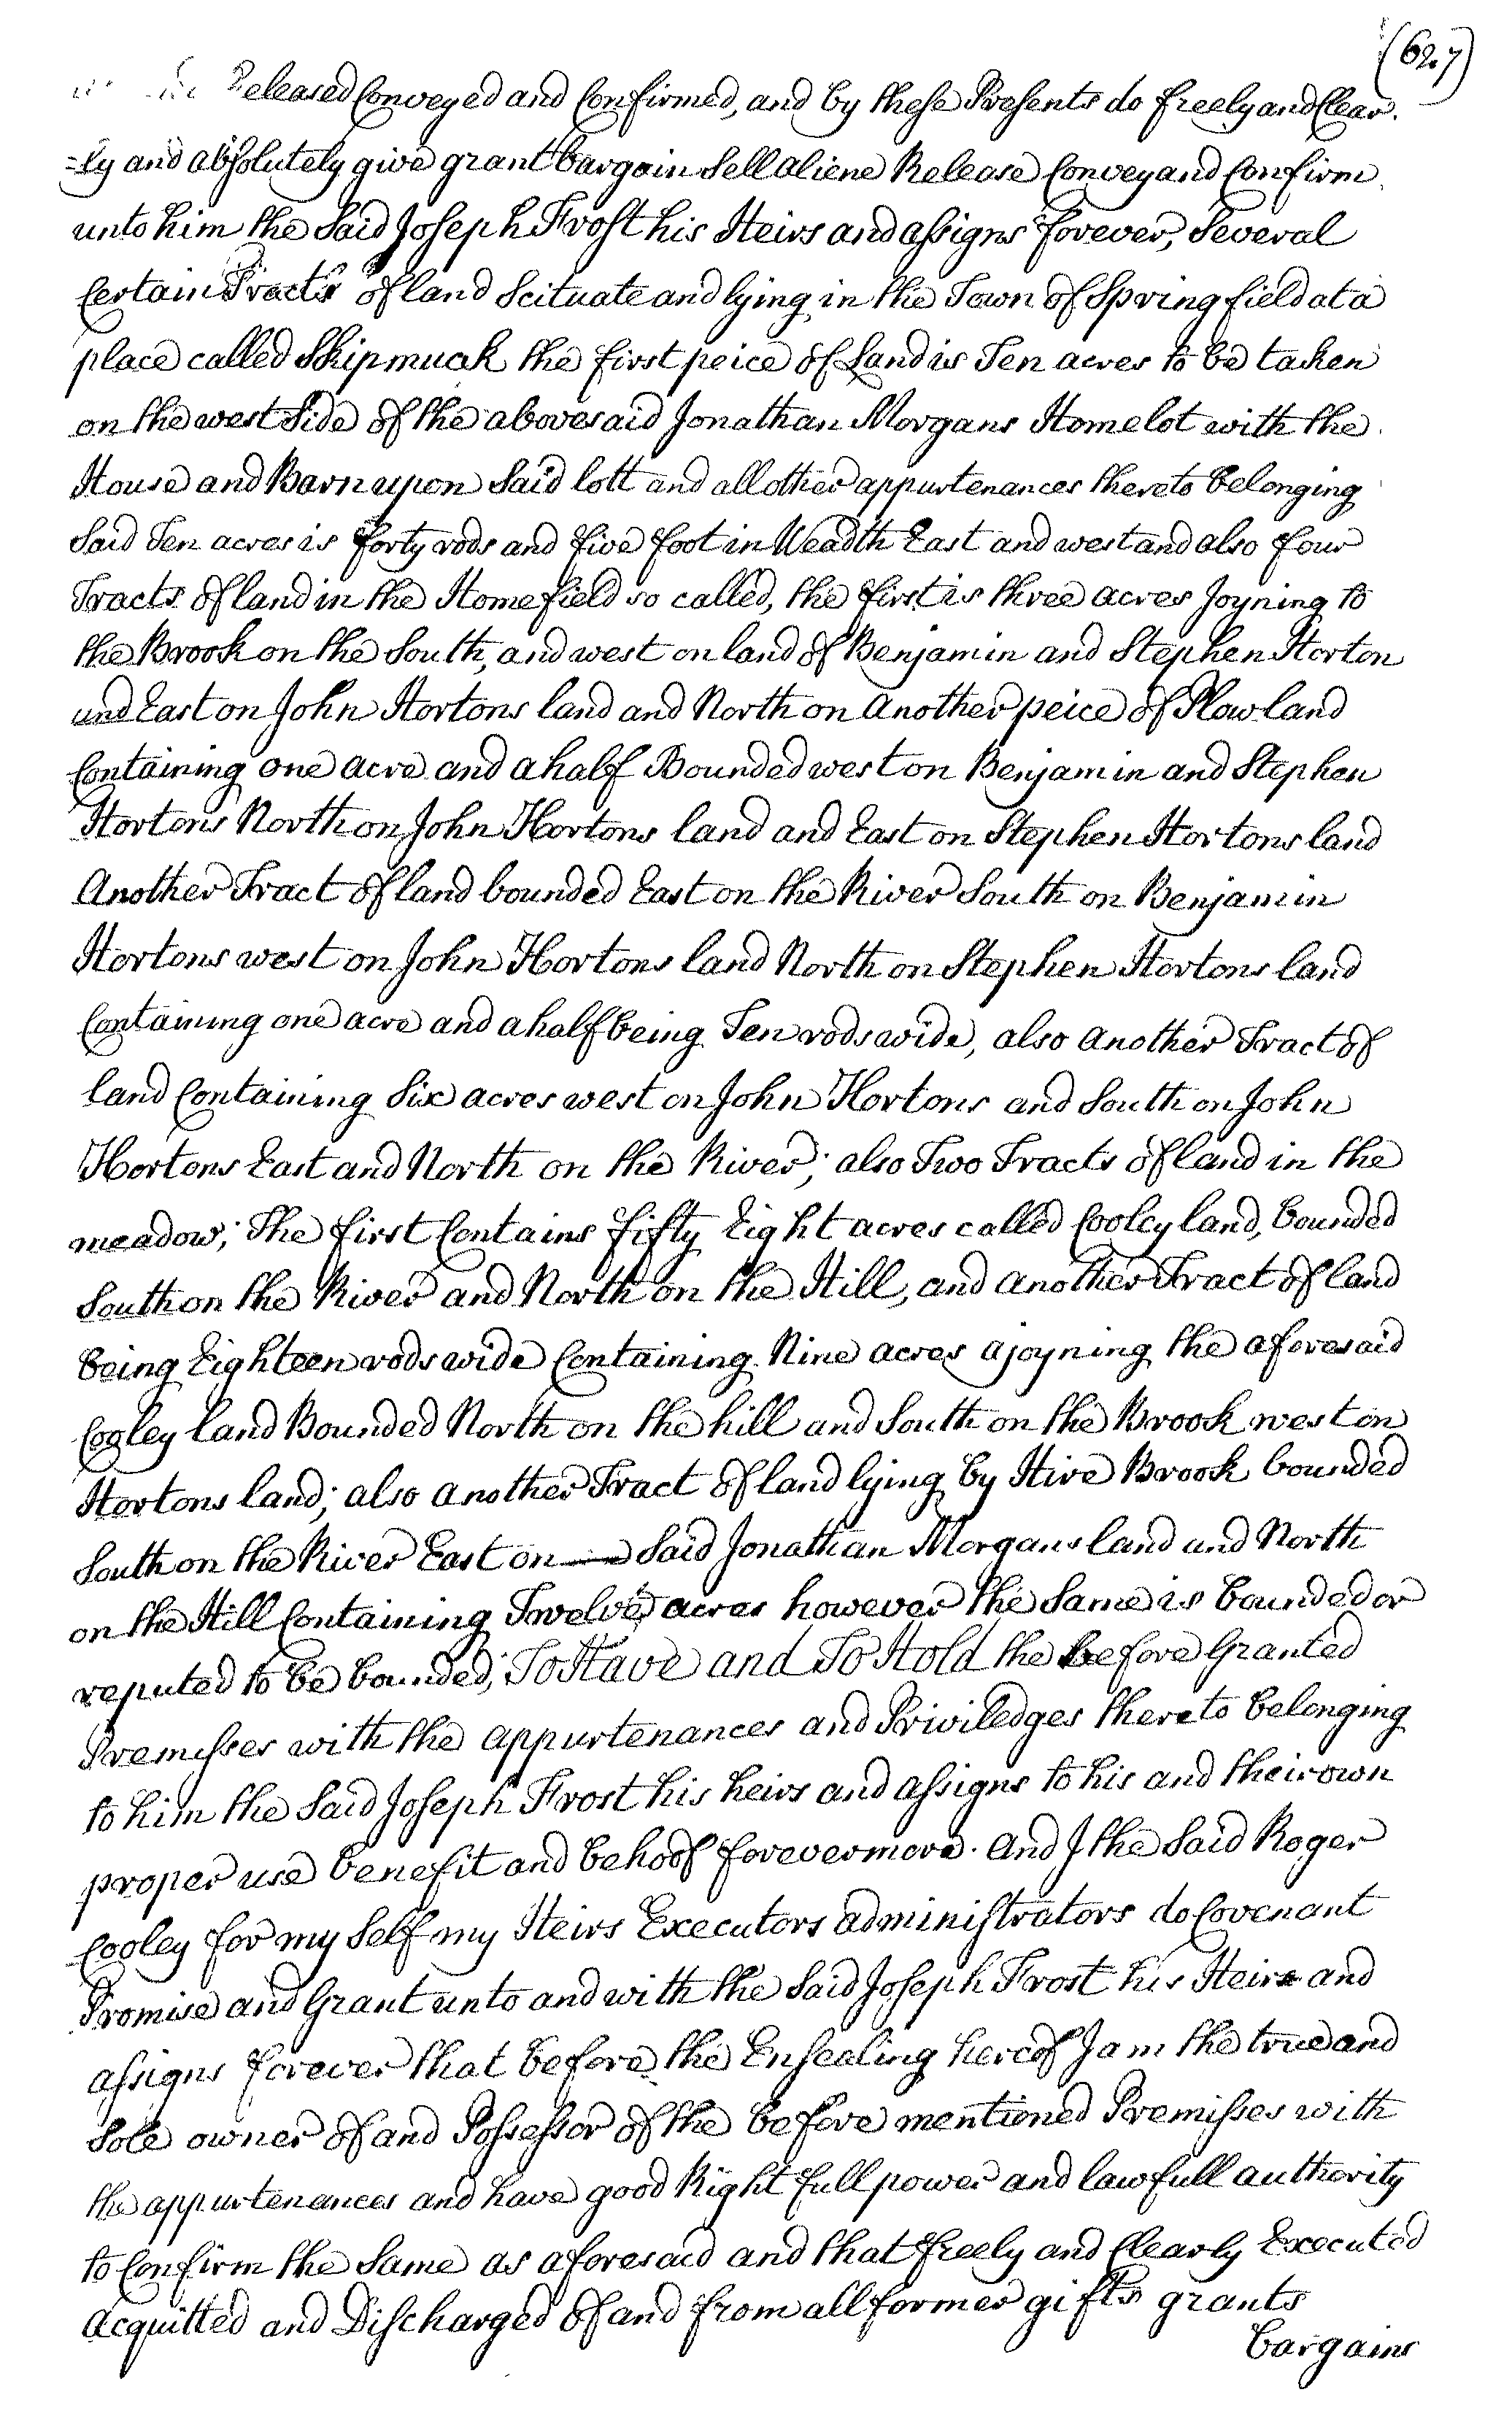 (627)
Released Conveyed and Confirmed, and by these Presents do freely and Clear.
=ly and absolutely give grant bargain Sell aliene Release Convey and Confirm
unto him the Said Joseph Frost his Heirs and assigns forever, Several
Certain Tracts of land Scituate and lying in the Town of Springfield at a
place called Skipmuck the first peice of Land is Ten acres to be taken
on the west Side of the abovesaid Jonathan Morgans Homelot with the
House and Barn upon Said lott and all other appurtenances thereto belonging
Said Ten acres is forty rods and five foot in Weadth East and west and also four
Tracts of land in the Homefield so called, the first is three acres Joyning to
the Brook on the South, and west on land of Benjamin and Stephen Horton
and East on John Hortons land and North on another peice of Plowland
Containing one acre and a half Bounded west on Benjamin and Stephen
Hortons North on John Hortons land and East on Stephen Hortons land
Another Tract of land bounded East on the River South on Benjamin
Hortons west on John Hortons land North on Stephen Hortons land
Containing one acre and a half being Ten rods wide, also another Tract of
land Containing Six acres west on John Hortons and South on John
Hortons East and North on the River; also Two Tracts of land in the
meadow; The first Contains fifty Eight acres called Cooley land, bounded
South on the River and North on the Hill, and another Tract of land
being Eighteen rods wide Containing Nine acres ajoyning the aforesaid
Cooley land Bounded North on the hill and South on the Brook west on
Hortons land; also another Tract of land lying by Hive Brook bounded
South on the River East on Said Jonathan Morgans land and North
on the Hill Containing Twelve acres however the Same is bounded or
reputed to be bounded; To Have and To Hold the before Granted
Premisses with the appurtenances and Priviledges thereto belonging
to him the Said Joseph Frost his heirs and assigns to his and their own
proper use benefit and behoof forevermore. And I the Said Roger
Cooley for my Self my Heirs Executors administrators do Covenant
Promise and Grant unto and with the Said Joseph Frost his Heirs and
assigns forever that before the Ensealing hereof I am the true and
Sole owner of and Possessor of the before mentioned Premisses with
the appurtenances and have good Right full power and lawfull authority
to Confirm the Same as aforesaid and that freely and Clearly Executed
Acquitted and Discharged of and from all former gifts grants
bargains